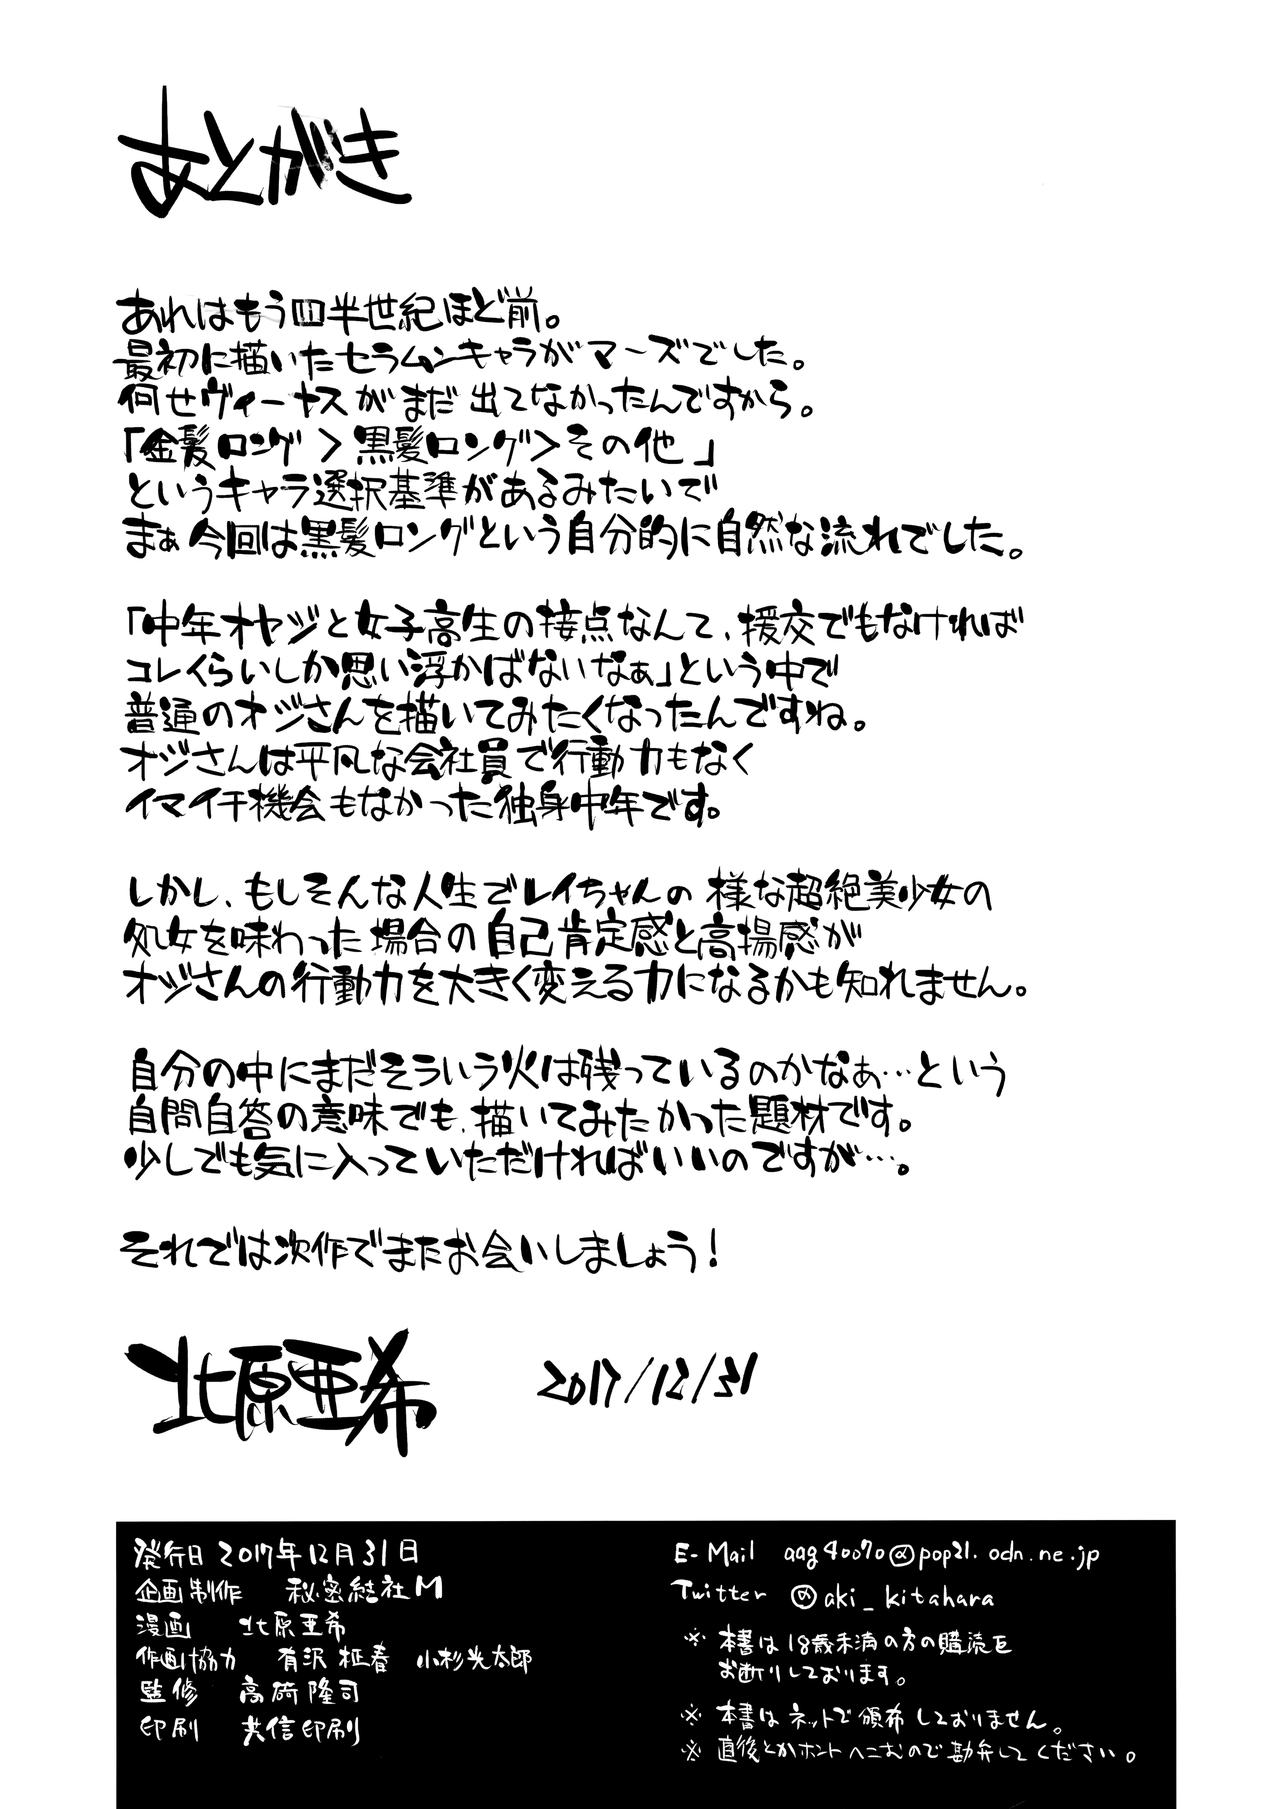 あとがき
あれはもう四半世紀ほど前。
最初に描いたセラムンキャラがマーズでした。
何せヴィーナスがまだ出てなかったんですから。
「金髪ロング＞黒髪ロング＞その他」
というキャラ選択基準があるみたいで
まぁ今回は黒髪ロングという自分的に自然な流れでした。
「中年オヤジと女子高生の接点なんて、援交でもなければ
コレくらいしか思い浮かばないなぁ」という中で
普通のオジさんを描いてみたくなったんですね。
オジさんは平凡な会社員で行動力もなく
イマイチ機会もなかった独身中年です。
しかし、もしそんな人生でレイちゃんの様な超絶美少女の
処女を味わった場合の自己肯定感と高揚感が
オジさんの行動力を大きく変える力になるかも知れません。
自分の中にまだそういう火は残っているのかなぁ…という
自問自答の意味でも、描いてみたかった題材です。
少しでも気に入っていただければいいのですが…。
それでは次作でまたお会いしましょう!
北原亜希 2017/12/31
発行日 2017年12月31日
企画制作 秘密結社M
漫画 北原亜希
作画協力 有沢柾春 小杉光太郎
監修 高荷隆司
印刷 共信印刷
E-Mail aag40070@pop21.odn.ne.jp
Twitter @aki_kitahara
※ 本書は18歳未満の方の購読を
お断りしております。
※ 本書はネットで頒布しておりません。
※ 直後とかホントへこむので勘弁してください。